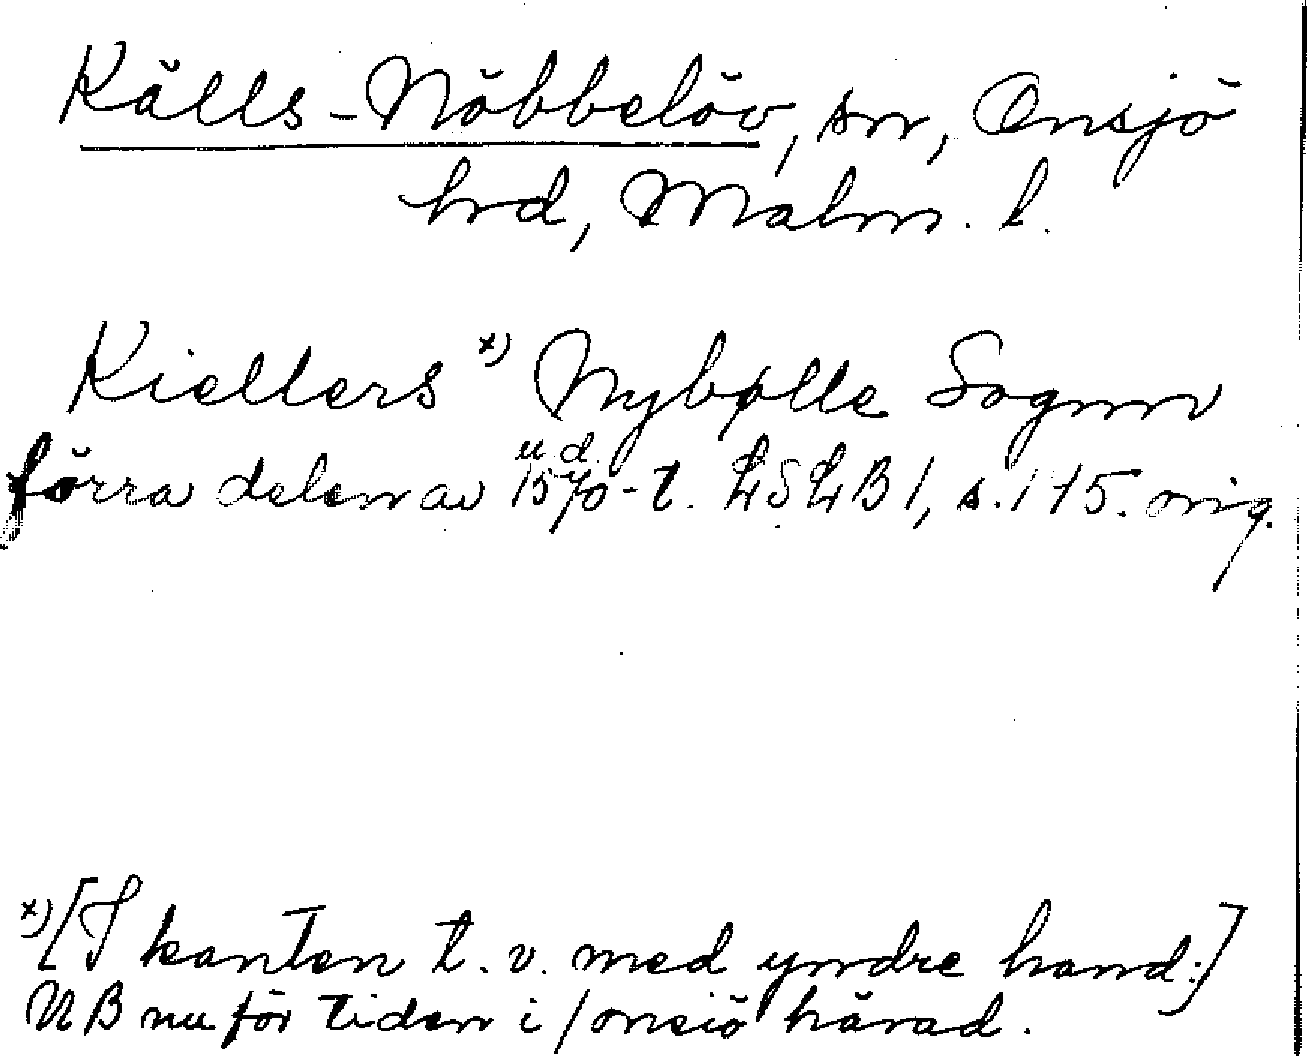 Källs-Nöbbelöv, sn, Onsjö
hrd, Malm. l.
Kiellers x) Nybølle Sognn
u.d.
förra delen av 1570-t. LSLB 1, s. 175. orig.
x) [I kanten t. v. med yndre hand:]
NB nu för tiden i / onsiö härad.